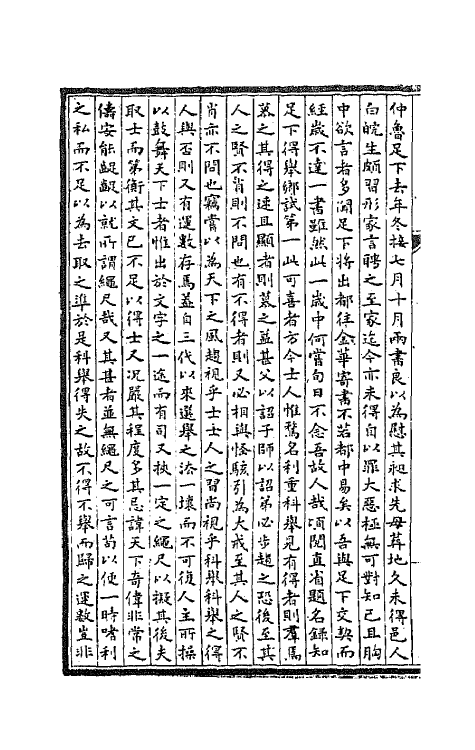 仲魯足下去年冬接七月十月兩書良以為慰其昶求先母葬地久未得邑人
白皖生頗習形家言聘之至家迄今亦未得自以罪大惡極無可對知己且胸
中欲言者多聞足下將出都往金華寄書不若都中易矣以吾與足下交契而
經歲不達一書雖然此一歲中何嘗旬日不念吾故人哉頃閱直省題名錄知
足下得舉鄉試第一此可喜者方今士人惟騖名利重科舉見有得者則羣焉
慕之其得之速且顯者則慕之益甚父以詔子師以詔弟必步趨之恐後至其
人之賢不肖則不問也有不得者則又必相與怪駭引為大戒至其人之賢不
肖亦不問也竊嘗以為天下之風趨視乎士士人之習尚視乎科舉科舉之得
人與否則又有運數存焉蓋自三代以來選舉之法一壞而不可復人主所操
以鼓舞天下士者惟出於文字之一途而有司又挾一定之繩尺以擬其後夫
取士而第衡其文已不足以得士又况嚴其程度多其忌諱天下奇偉非常之
儔安能齪齪以就所謂繩尺哉又其甚者並無繩尺之可言苟以便一時嗜利
之私而不足以為去取之準於是科舉得失之故不得不舉而歸之運數豈非